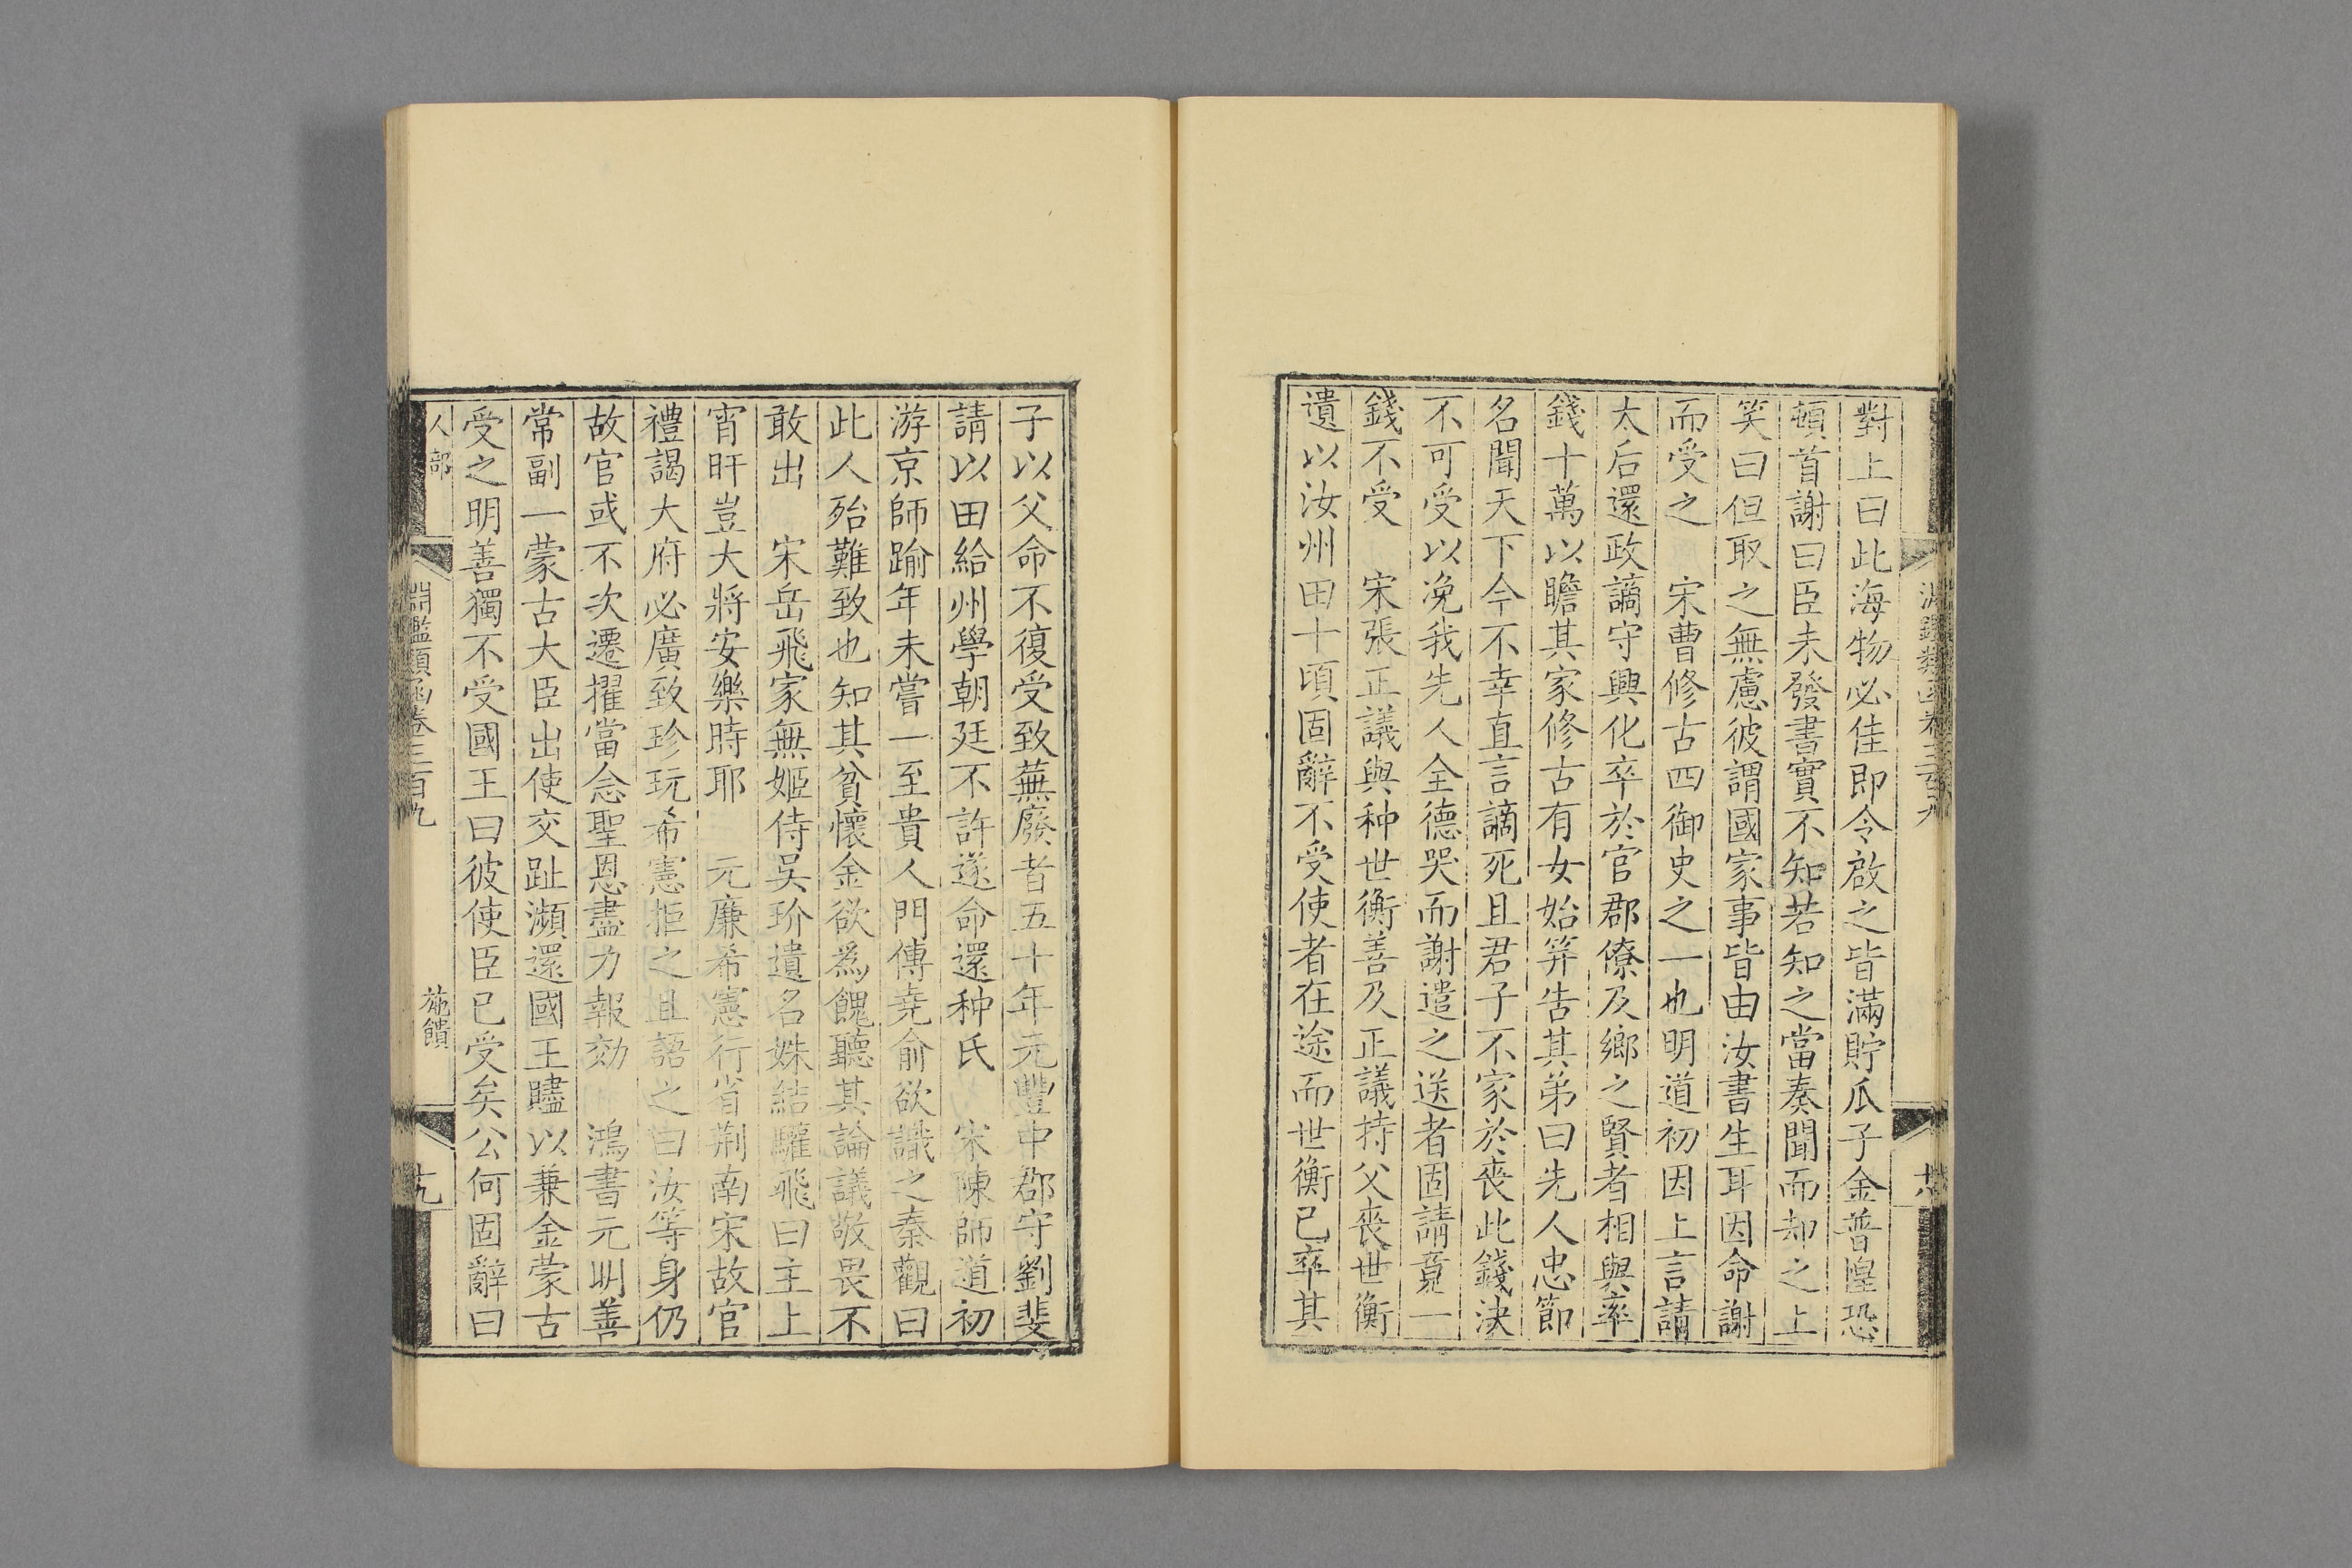 對上曰此海物必佳即令啟之皆滿貯瓜子金普惶恐
頓首謝曰臣未發書實不知若知之當奏聞而却之上
笑曰但取之無慮彼謂國家事皆由汝書生耳因命謝
而受之　宋曹修古四御史之一也明道初因上言請
太后還政謫守興化卒於官郡僚及鄉之賢者相與率
錢十萬以贍其家修古有女始笄告其弟曰先人忠節
名聞天下今不幸直言謫死且君子不家於喪此錢決
不可受以浼我先人全德哭而謝遣之送者固請竟一
錢不受　宋張正議與种世衡善及正議持父喪世衡
遺以汝州田十頃固辭不受使者在途而世衡已卒其
子以父命不復受致蕪廢者五十年元豐中郡守劉斐
請以田給州學朝廷不許遂命還种氏　宋陳師道初
游京師踰年未嘗一至貴人門傅堯俞欲識之秦觀曰
此人殆難致也知其貧懷金欲為餽聽其論議敬畏不
敢出　宋岳飛家無姬侍吳玠遺名姝結驩飛曰主上
宵旰豈大將安樂時耶　元廉希憲行省荆南宋故官
禮謁大府必廣致珍玩希憲拒之且語之曰汝等身仍
故官或不次遷擢當念聖恩盡力報効　鴻書元明善
常副一蒙古大臣出使交趾瀕還國王贐以兼金蒙古
受之明善獨不受國王曰彼使臣已受矣公何固辭曰
人部
淵鑑類函卷三百九
施饋
十九